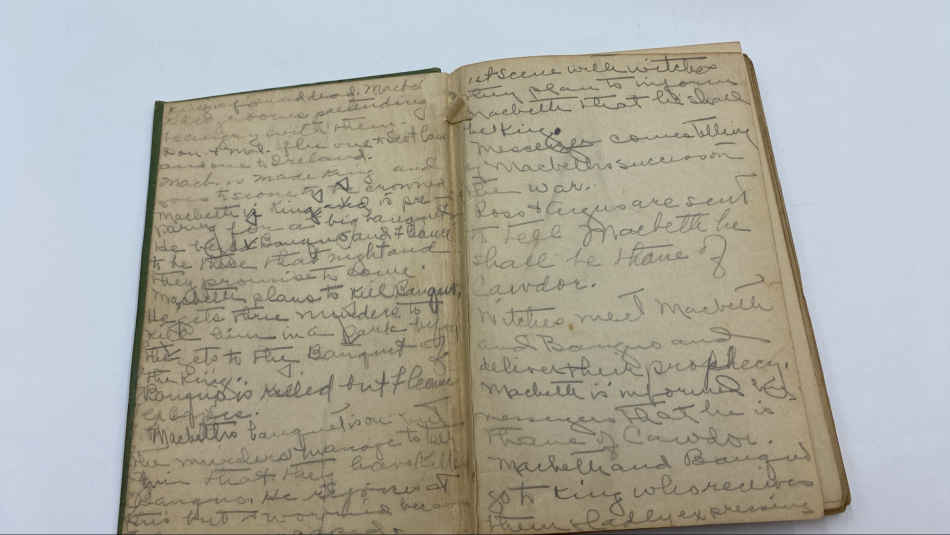 Macbe
comes pretending
with them.
one to Scotlan
one to Ireland.
is made King and
to scone to be crowned
Macbeth is King and is pre
paring for a big banquet
He Banquo and Fleanc
to be there that night and
they promise to come.
Macbeth plans to kill Banquo,
He gets three murders to
kill him in a park before
gets to the Banquet of
the King.
Banquo is killed but Fleance
escapes.
Macbeths banquet is on and
the murders manage to tell
him that they have kille
Banquo. He rejoices at
this but is worried beca
scene with witches
they plan to inform
Macbeth that he shall
be King.
Messenger comes telling
of Macbeths success in
the war.
Ross & Angus are sent
to tell Macbeth he
shall be thane of
Cawdor.
Witches meet Macbeth
and Banquo and
deliver their prophecy.
Macbeth is informed by
messenger that he is
thane of Cawdor.
Macbeth and Banquo
go to King who recieves
them gladly expressing